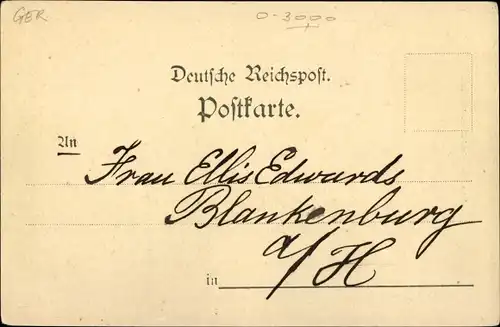 GER.
D-3000
Deutsche Reichspost.
Postkarte.
An
Frau Ellis Edwards
Blankenburg
a/H
in